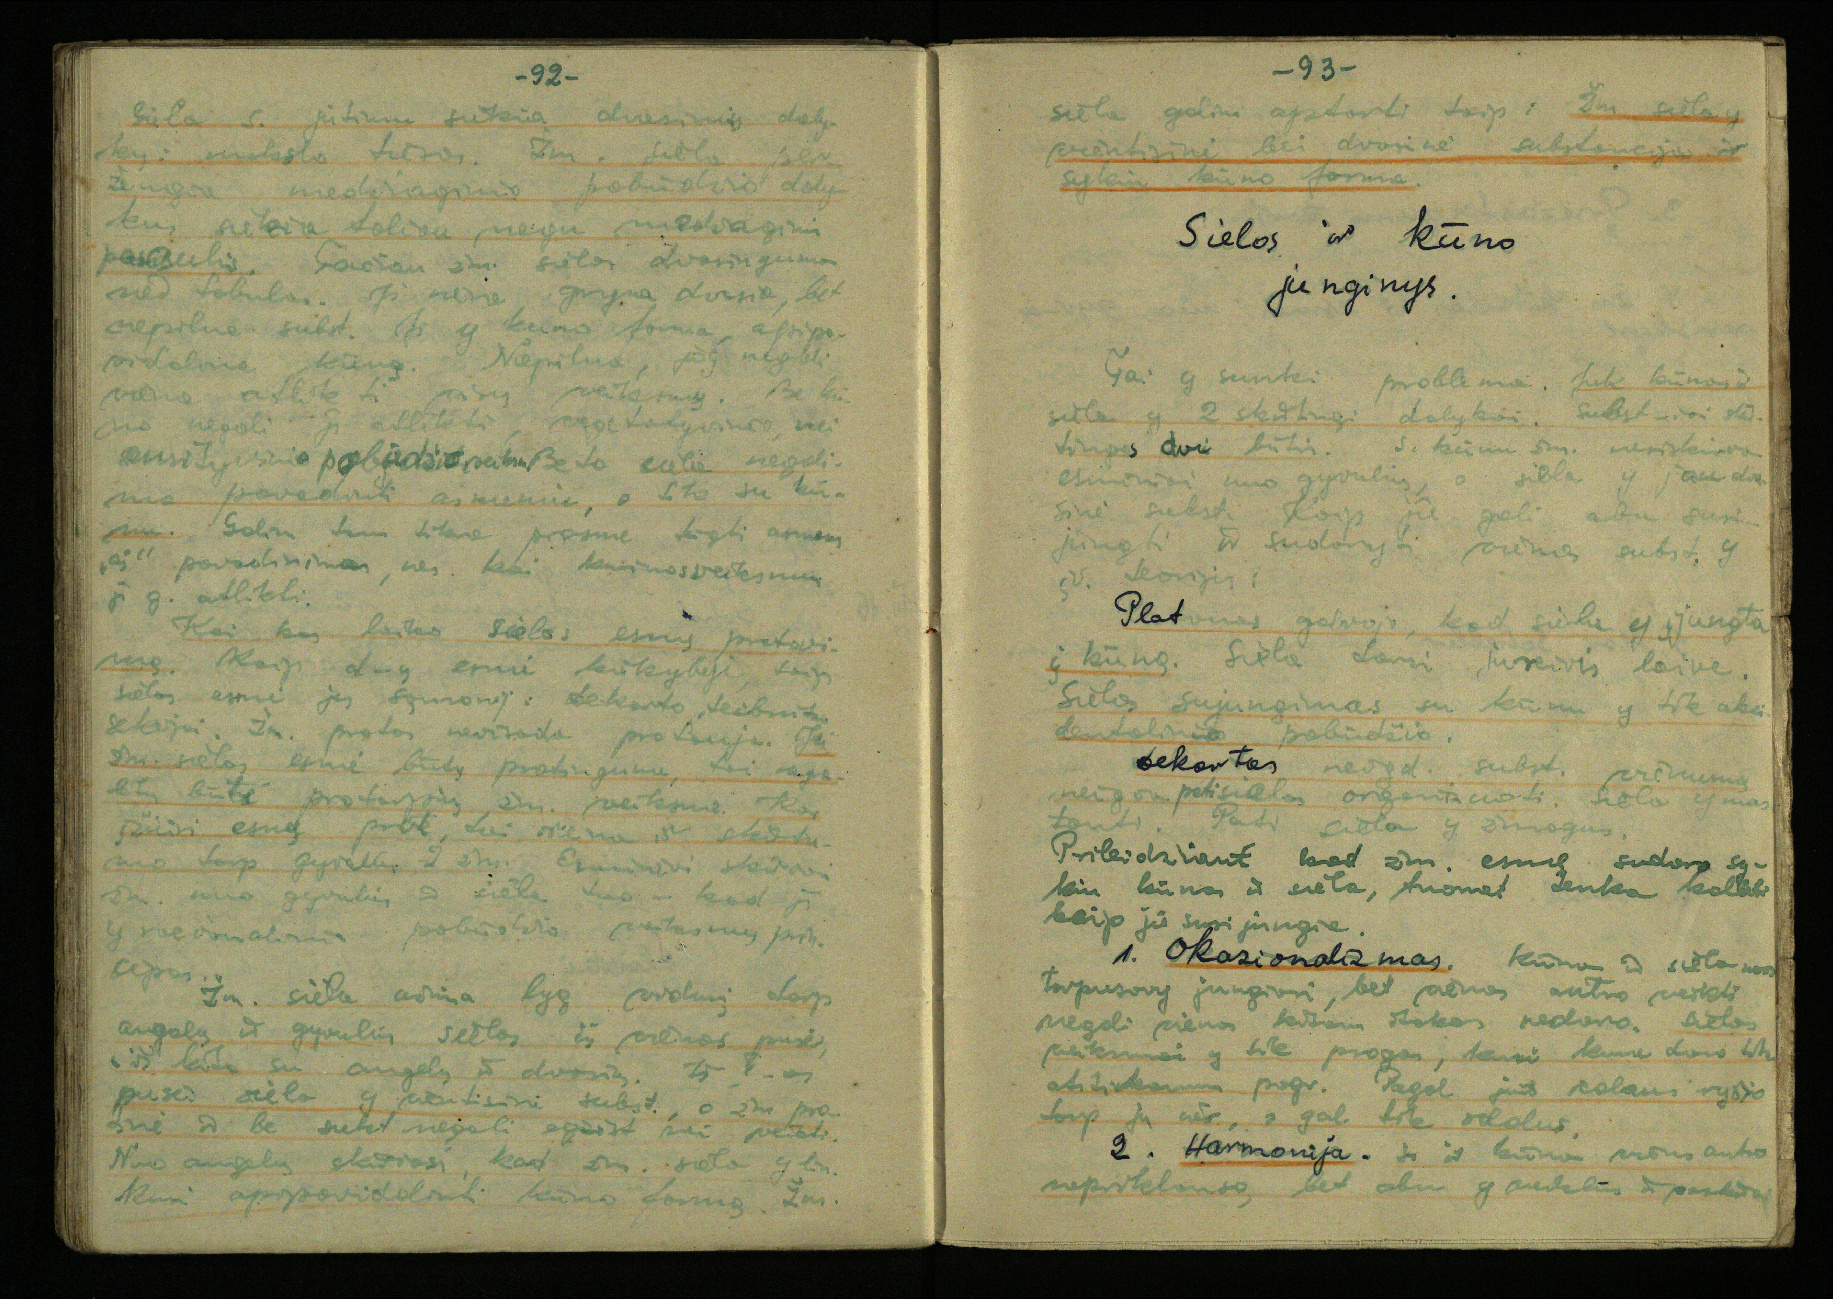 -92-
Siela s. jutimu siekia dvasinių daly-
kų: mokslo tiesos. Žm. siela per
žengia medžiaginio pobūdžio daly-
kus siekia toliau negu medžiagini
pasaulis. Tačiau žm. sielos dvasingumas
nėd tobulas. Ji nėra gryna dvasia, bet
nepilna subst. Ji y kūno forma, apipa-
vidalina kūną. Nepilna, jog negali
viena atlikti visų veiksmų. Be kū-
no negali ji atlikti, vegetatyvinio, nei
sensityvinio pobūdžio veiksm. Be to siela negali-
ma pavadinti asmeniu, o tik su kū-
nu. Galim tam tikra prasme teigti asmens
„aš“ pavadinimas, nes kai kuriuos veiksmus
ji g. atlikti.
Kai kas laiko sielos esmę protavi-
mą. Kaip d-ų esmė kiekybėje, taip
sielos esmė jų sąmonėj: dekarto, leibnitzo
sekėjai. Žm. protas nevisada protauja. Jei
žm. sielos esmė būtų protingume, tai nega-
lėtų būti protavimų žm. veiksme. Kas
žiūri esmę prot, tai eina iš skirtu-
mo tarp gyvulių ir žm. Esminiai skiriasi
žm. nuo gyvulių ir siela tuo - kad ji
y racionalinio pobūdžio veiksmų prin-
cipas.
Žm. siela užima lyg vidurį tarp
angelų ir gyvulių sielos iš vienos pusės,
iš kito su angelų ir dvasių. Iš I-os
pusės siela y vientisinė subst., o žm pra
smė ir be subst negali egzist nei veikti.
Nuo angelų skiriasi, kad žm. siela y lin-
kusi apipavidalinti kūno formą. Žm.
-93-
siela galim aptarti taip: Žm siela y
vientisinė bei dvasinė substancija ir
sykiu kūno forma.
Sielos ir kūno
junginys.
Tai y sunki problema. Juk kūnas ir
siela y 2 skirtingi dalykai. Subst-iai skir-
tingos dvi būtis. S. kūnu žm. nesiskiria
esminiai nuo gyvulių, o siela y jau dva-
sinė subst. Kaip jie gali abu susi-
jungti ir sudaryti vienas subst. y
įv. teorijos:
Platonas galvojo, kad siela y įjungta
į kūną. Siela tarsi jureivis laive.
Sielos sujungimas su kūnu y tik akci-
dentalinio pobūdžio.
dekartas neigd. subst. vienumą
neigia pati sielos organizuoti. siela y mas
tanti. Pati siela y žmogus.
Prileidžiant kad žm. esmę sudaro sy-
kiu kūnas ir siela, tuomet tenka kalbėti
kaip jie susijungia.
1. Okazionalizmas. Kūnas ir siela nors
tarpusavy jungiasi, bet vienas antro veikti
negali vienas kitam įtakos nedaro. Sielos
veiksmai y tik progos, kuri kūne daro tik
atitinkamu pagr. Pagal juos realaus ryšio
tarp jų nėr, o gal tik idealus.
2. Harmonija. Si ir kūnas viens antro
nepriklauso, bet abu y